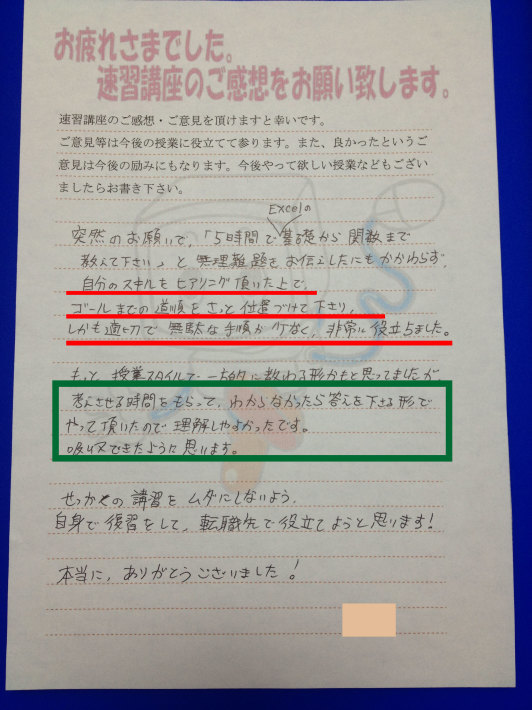 お疲れさまでした。
速習講座のご感想をお願い致します。
速習講座のご感想・ご意見を頂けますと幸いです。
ご意見等は今後の授業に役立てて参ります。また、良かったというご
意見は今後の励みにもなります。今後やって欲しい授業などもござい
ましたらお書き下さい。
Excelの
突然のお願いで、「5時間で基礎から関数まで
教えて下さい」と無理難題をお伝えしたにもかかわらず、
自分のスキルをヒアリング頂いた上で、
ゴールまでの道順をさっと位置づけて下さり、
しかも適切で無駄な手順が少なく、非常に役立ちました。
もっと授業スタイルで一方的に教わる形かもと思ってましたが、
考えさせる時間をもらって、わからなかったら答えを下さる形で
やって頂いたので理解しやすかったです。
吸収できたように思います。
せっかくの講習をムダにしないよう、
自身で復習をして、転職先で役立てようと思います!
本当に、ありがとうございました!